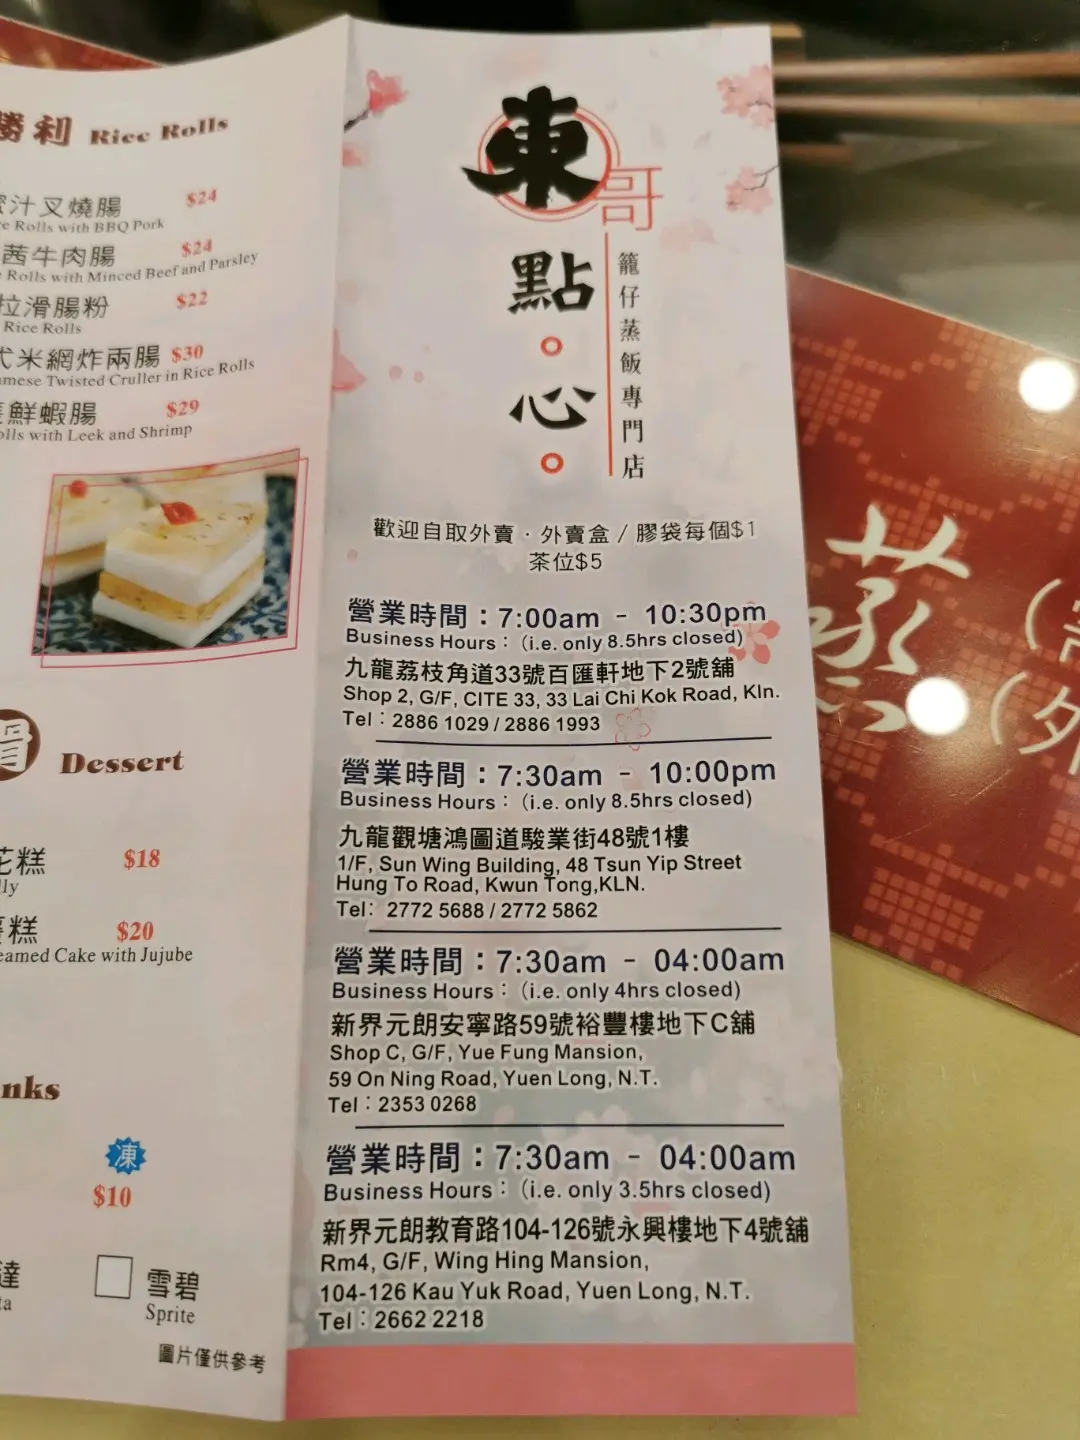 勝利 Rice Rolls
汁叉燒腸 $24
Rolls with BBQ Pork
茜牛肉腸 $24
Rolls with Minced Beef and Parsley
拉滑腸粉 $22
Rice Rolls
米網炸兩腸 $30
Twisted Cruller in Rice Rolls
鮮蝦腸 $29
with Leek and Shrimp
Dessert
花糕 $18
糕 $20
Cake with Jujube
凍
$10
雪碧
Sprite
圖片僅供參考
東哥
點心
籠仔蒸飯專門店
歡迎自取外賣·外賣盒/膠袋每個$1
茶位$5
營業時間：7:00am - 10:30pm
Business Hours：(i.e. only 8.5hrs closed)
九龍荔枝角道33號百匯軒地下2號舖
Shop 2, G/F, CITE 33, 33 Lai Chi Kok Road, Kln.
Tel：2886 1029 / 2886 1993
營業時間：7:30am - 10:00pm
Business Hours：(i.e. only 8.5hrs closed)
九龍觀塘鴻圖道駿業街48號1樓
1/F, Sun Wing Building, 48 Tsun Yip Street
Hung To Road, Kwun Tong,KLN.
Tel: 2772 5688 / 2772 5862
營業時間：7:30am - 04:00am
Business Hours：(i.e. only 4hrs closed)
新界元朗安寧路59號裕豐樓地下C舖
Shop C, G/F, Yue Fung Mansion,
59 On Ning Road, Yuen Long, N.T.
Tel：2353 0268
營業時間：7:30am - 04:00am
Business Hours：(i.e. only 3.5hrs closed)
新界元朗教育路104-126號永興樓地下4號舖
Rm4, G/F, Wing Hing Mansion,
104-126 Kau Yuk Road, Yuen Long, N.T.
Tel：2662 2218
蒸